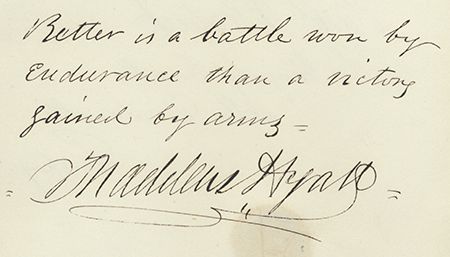 Better is a battle won by
Endurance than a victory
gained by arms =
= Thaddeus Hyatt =